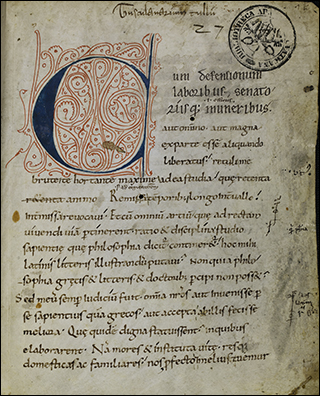 Tusculanarum tullii
27
BIBLIOTHECA AP VATICANA
Cum defensionum
laboribus, senato
riisq; muneribus.
aut omnino. aut magna
ex parte esse aliquando
liberatus; retuli me
brute te hortante maxime ad ea studia; que retenta
animo Remissa temporibus longo intervallo
intermissa revocavi; Et cu omniu artiu que ad recta
vivendi via ptinerent ratio & disciplina studio
sapientie que philosophia dicit contineret; hoc mihi
latinis litteris illustrandu putavi; Non quia philo
sophia grecis & litteris & doctorib; pcipi non posset;
sed meu semp iudiciu fuit. omnia nros aut invenisse p
se sapientius qua grecos aut accepta ab illis fecisse
meliora; Que quide digna statuissent. in quibus
elaborarent. Na mores & instituta vite. resq;
domesticas ac familiares. nos pfecto melius tuemur